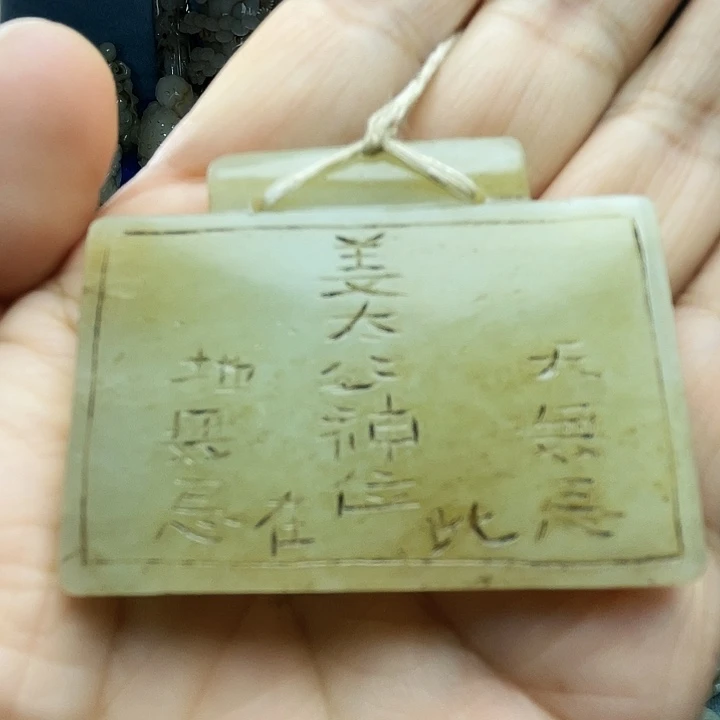 天無忌
姜太公神位
在此
地無忌